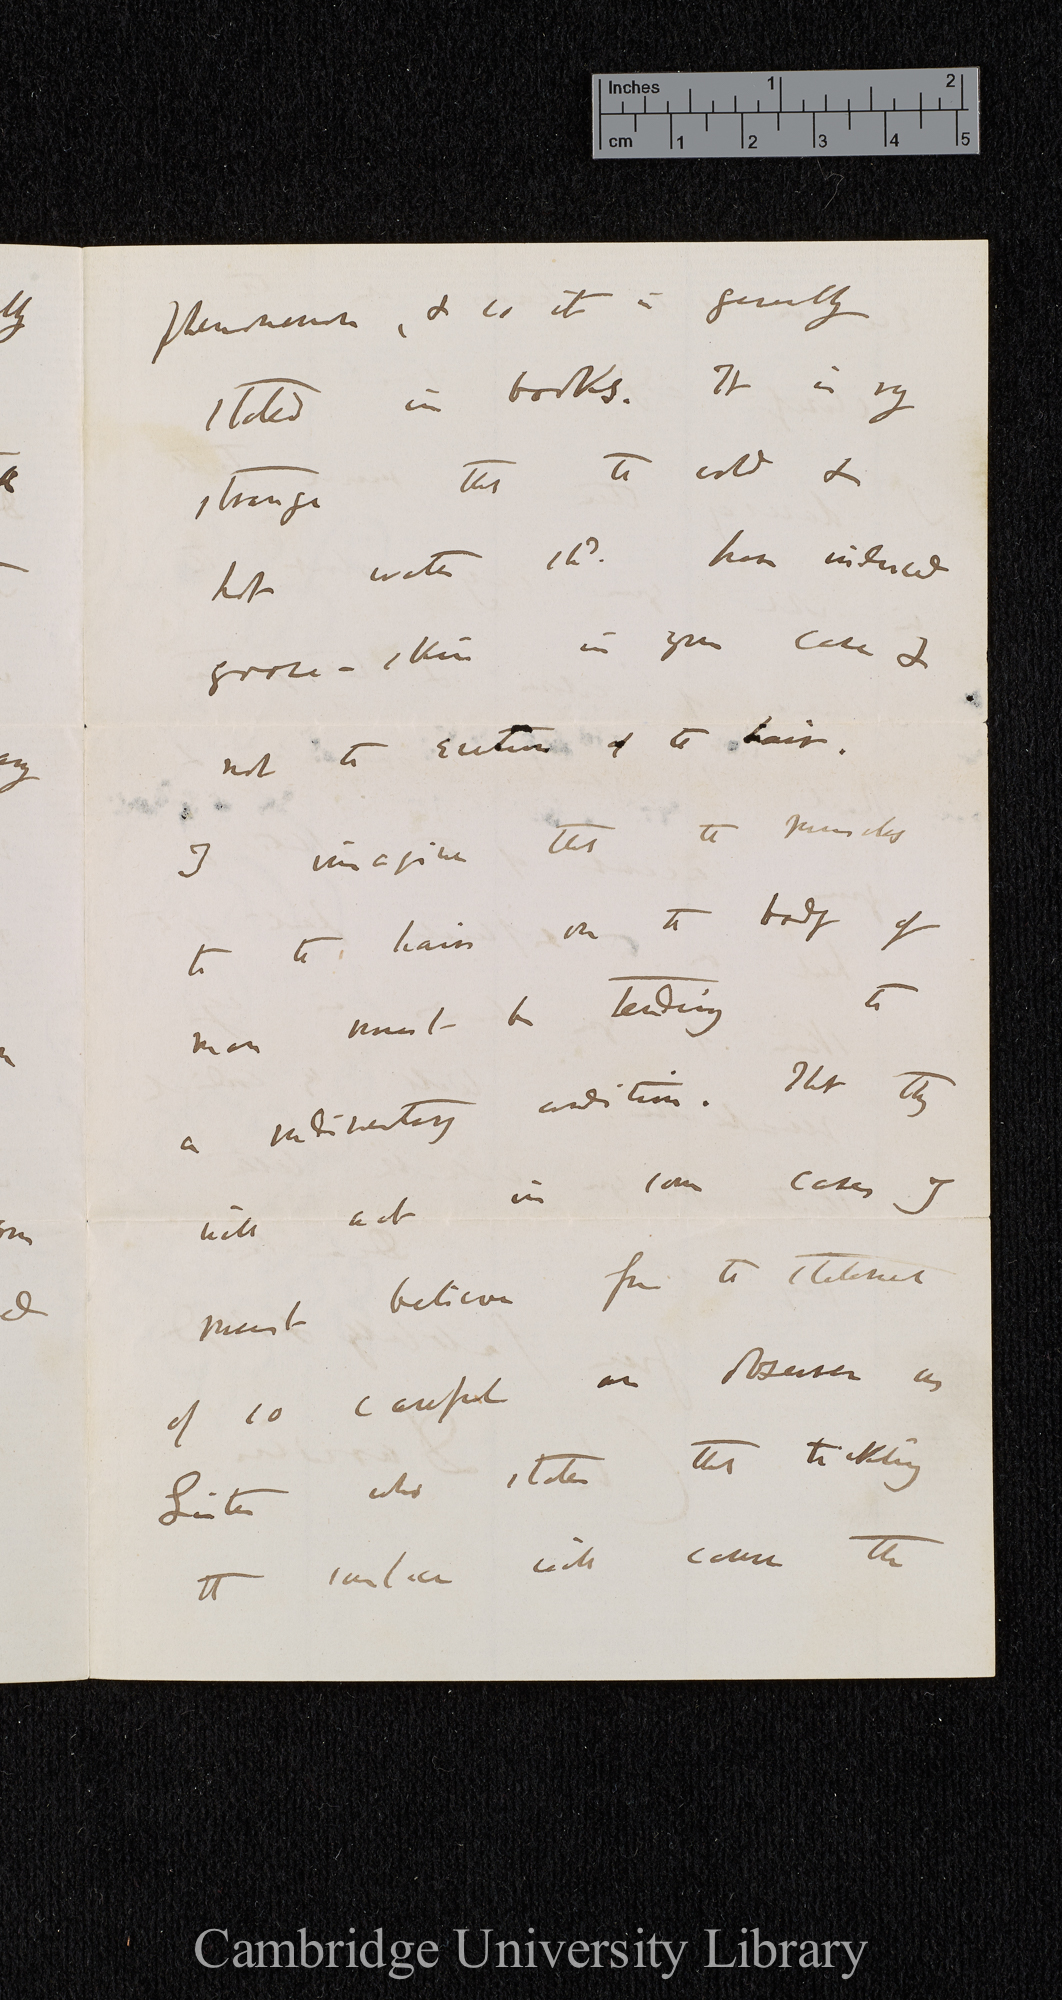 Inches 1 2
cm 1 2 3 4 5
phenomenon, & so it is generally
stated in books. It is very
strange that the cold &
hot water shd. have induced
goose-skin in your case &
not the erection of the hair.
I imagine that the muscles
to the hairs on the body of
man must be tending to
a rudimentary condition. That they
will act in some cases I
must believe from the statement
of so careful an observer as
Lister who states that tickling
the surface will cause the
Cambridge University Library